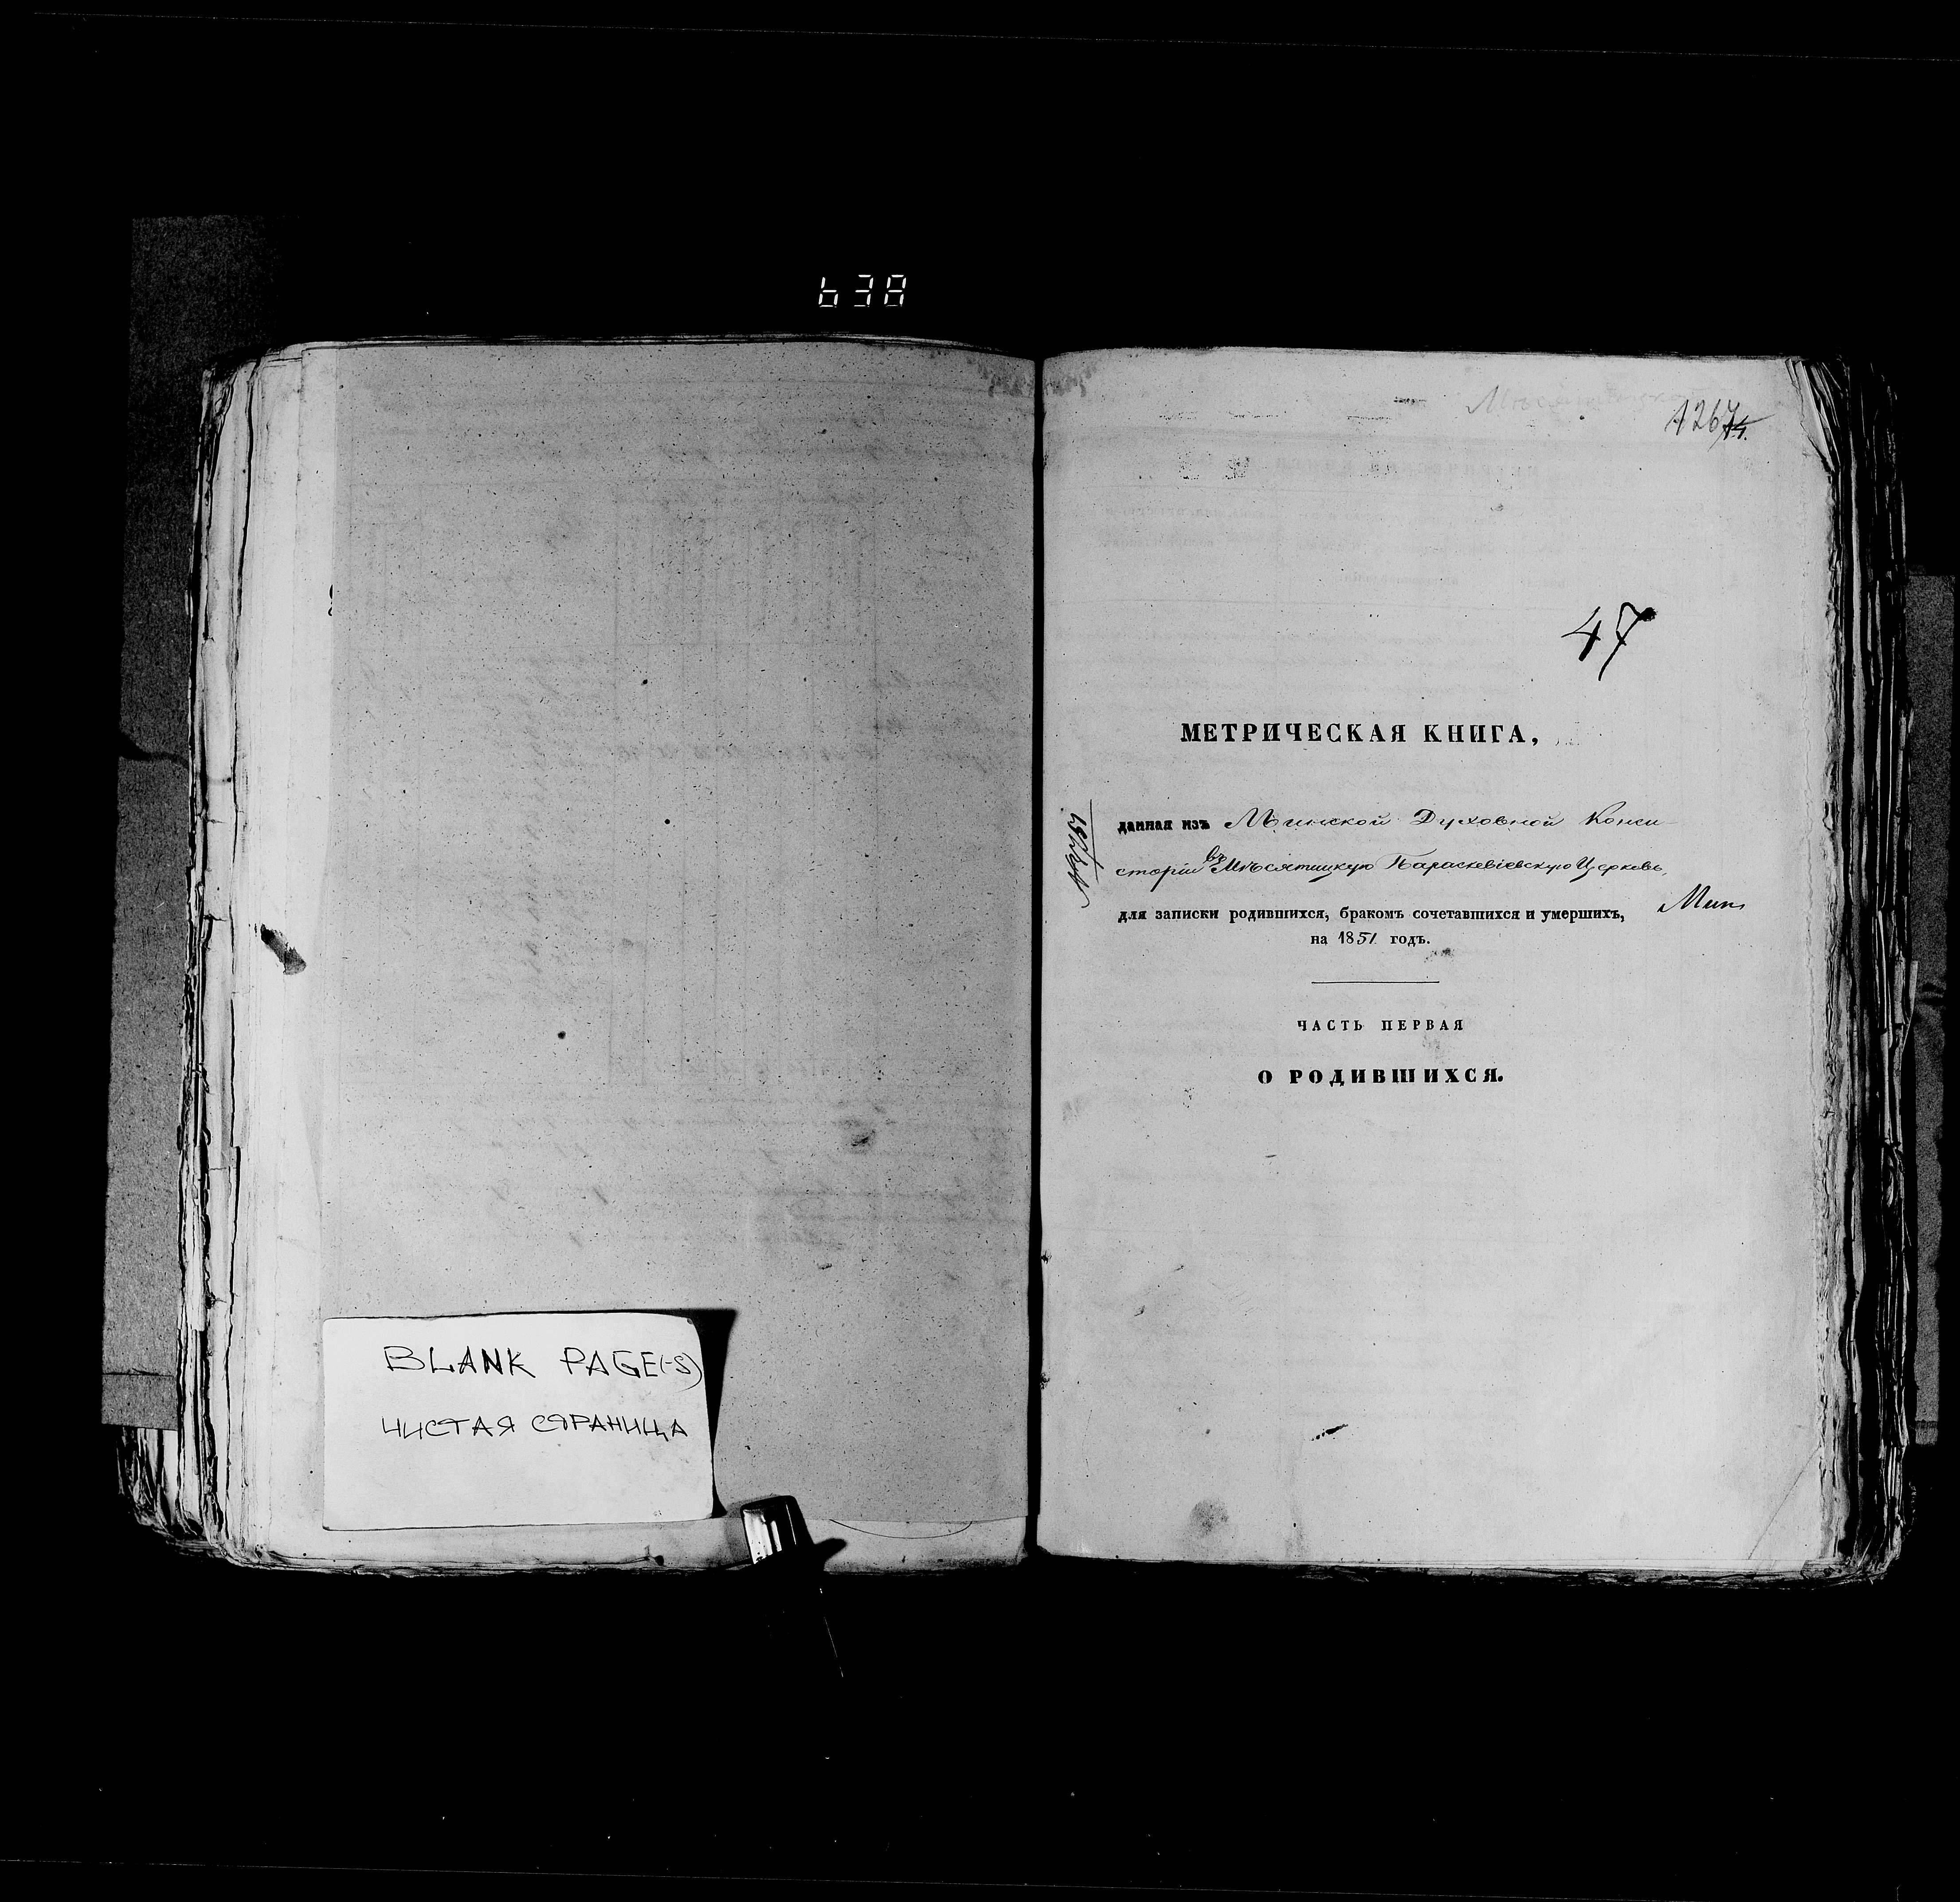 638
BLANK PAGE(-S)
ЧИСТАЯ СТРАНИЦА
47
МЕТРИЧЕСКАЯ КНИГА,
данная изъ Минской Духовной Конси-
сторіи въ Мѣсятицкую Параскевіевскую Церковь,
для записки родившихся, бракомъ сочетавшихся и умершихъ,
на 1851 годъ.
ЧАСТЬ ПЕРВАЯ
О РОДИВШИХСЯ.